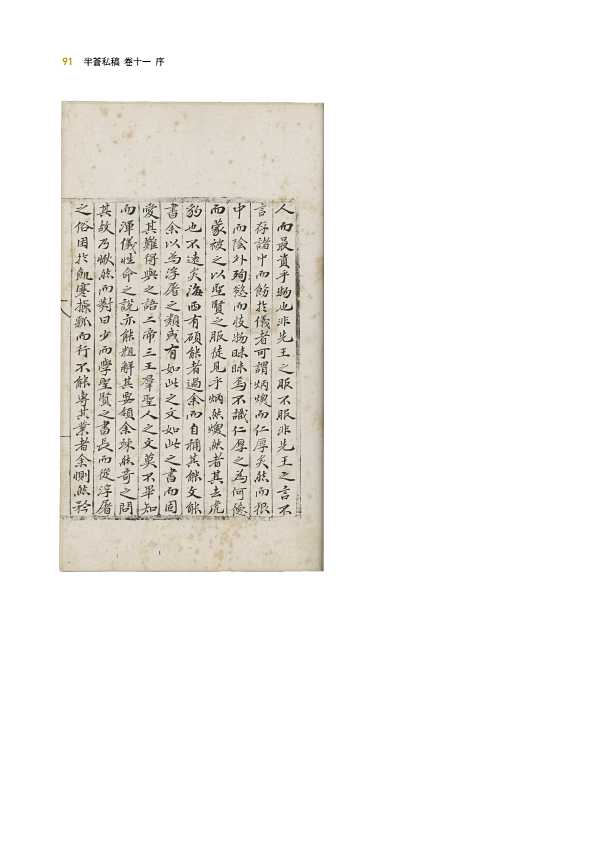 91 半菴私稿 卷十一 序
人而最貴乎物也非先王之服不服非先王之言不
言存諸中而飭於儀者可謂炳煥而仁厚矣然而根
中而陰外殉慾而忮物昧昧焉不識仁厚之為何德
而蒙被之以聖賢之服徒見乎炳然煥然者其去虎
豹也不遠矣海西有碩能者過余而自稱其能文能
書余以為浮屠之類或有如此之文如此之書而固
愛其難得與之語二帝三王羣聖人之文莫不畢知
而渾儀性命之說亦能粗解其要領余竦然奇之問
其故乃愀然而對曰少而學聖賢之書長而從浮屠
之俗困於飢寒操瓢而行不能專其業者余惻然矜